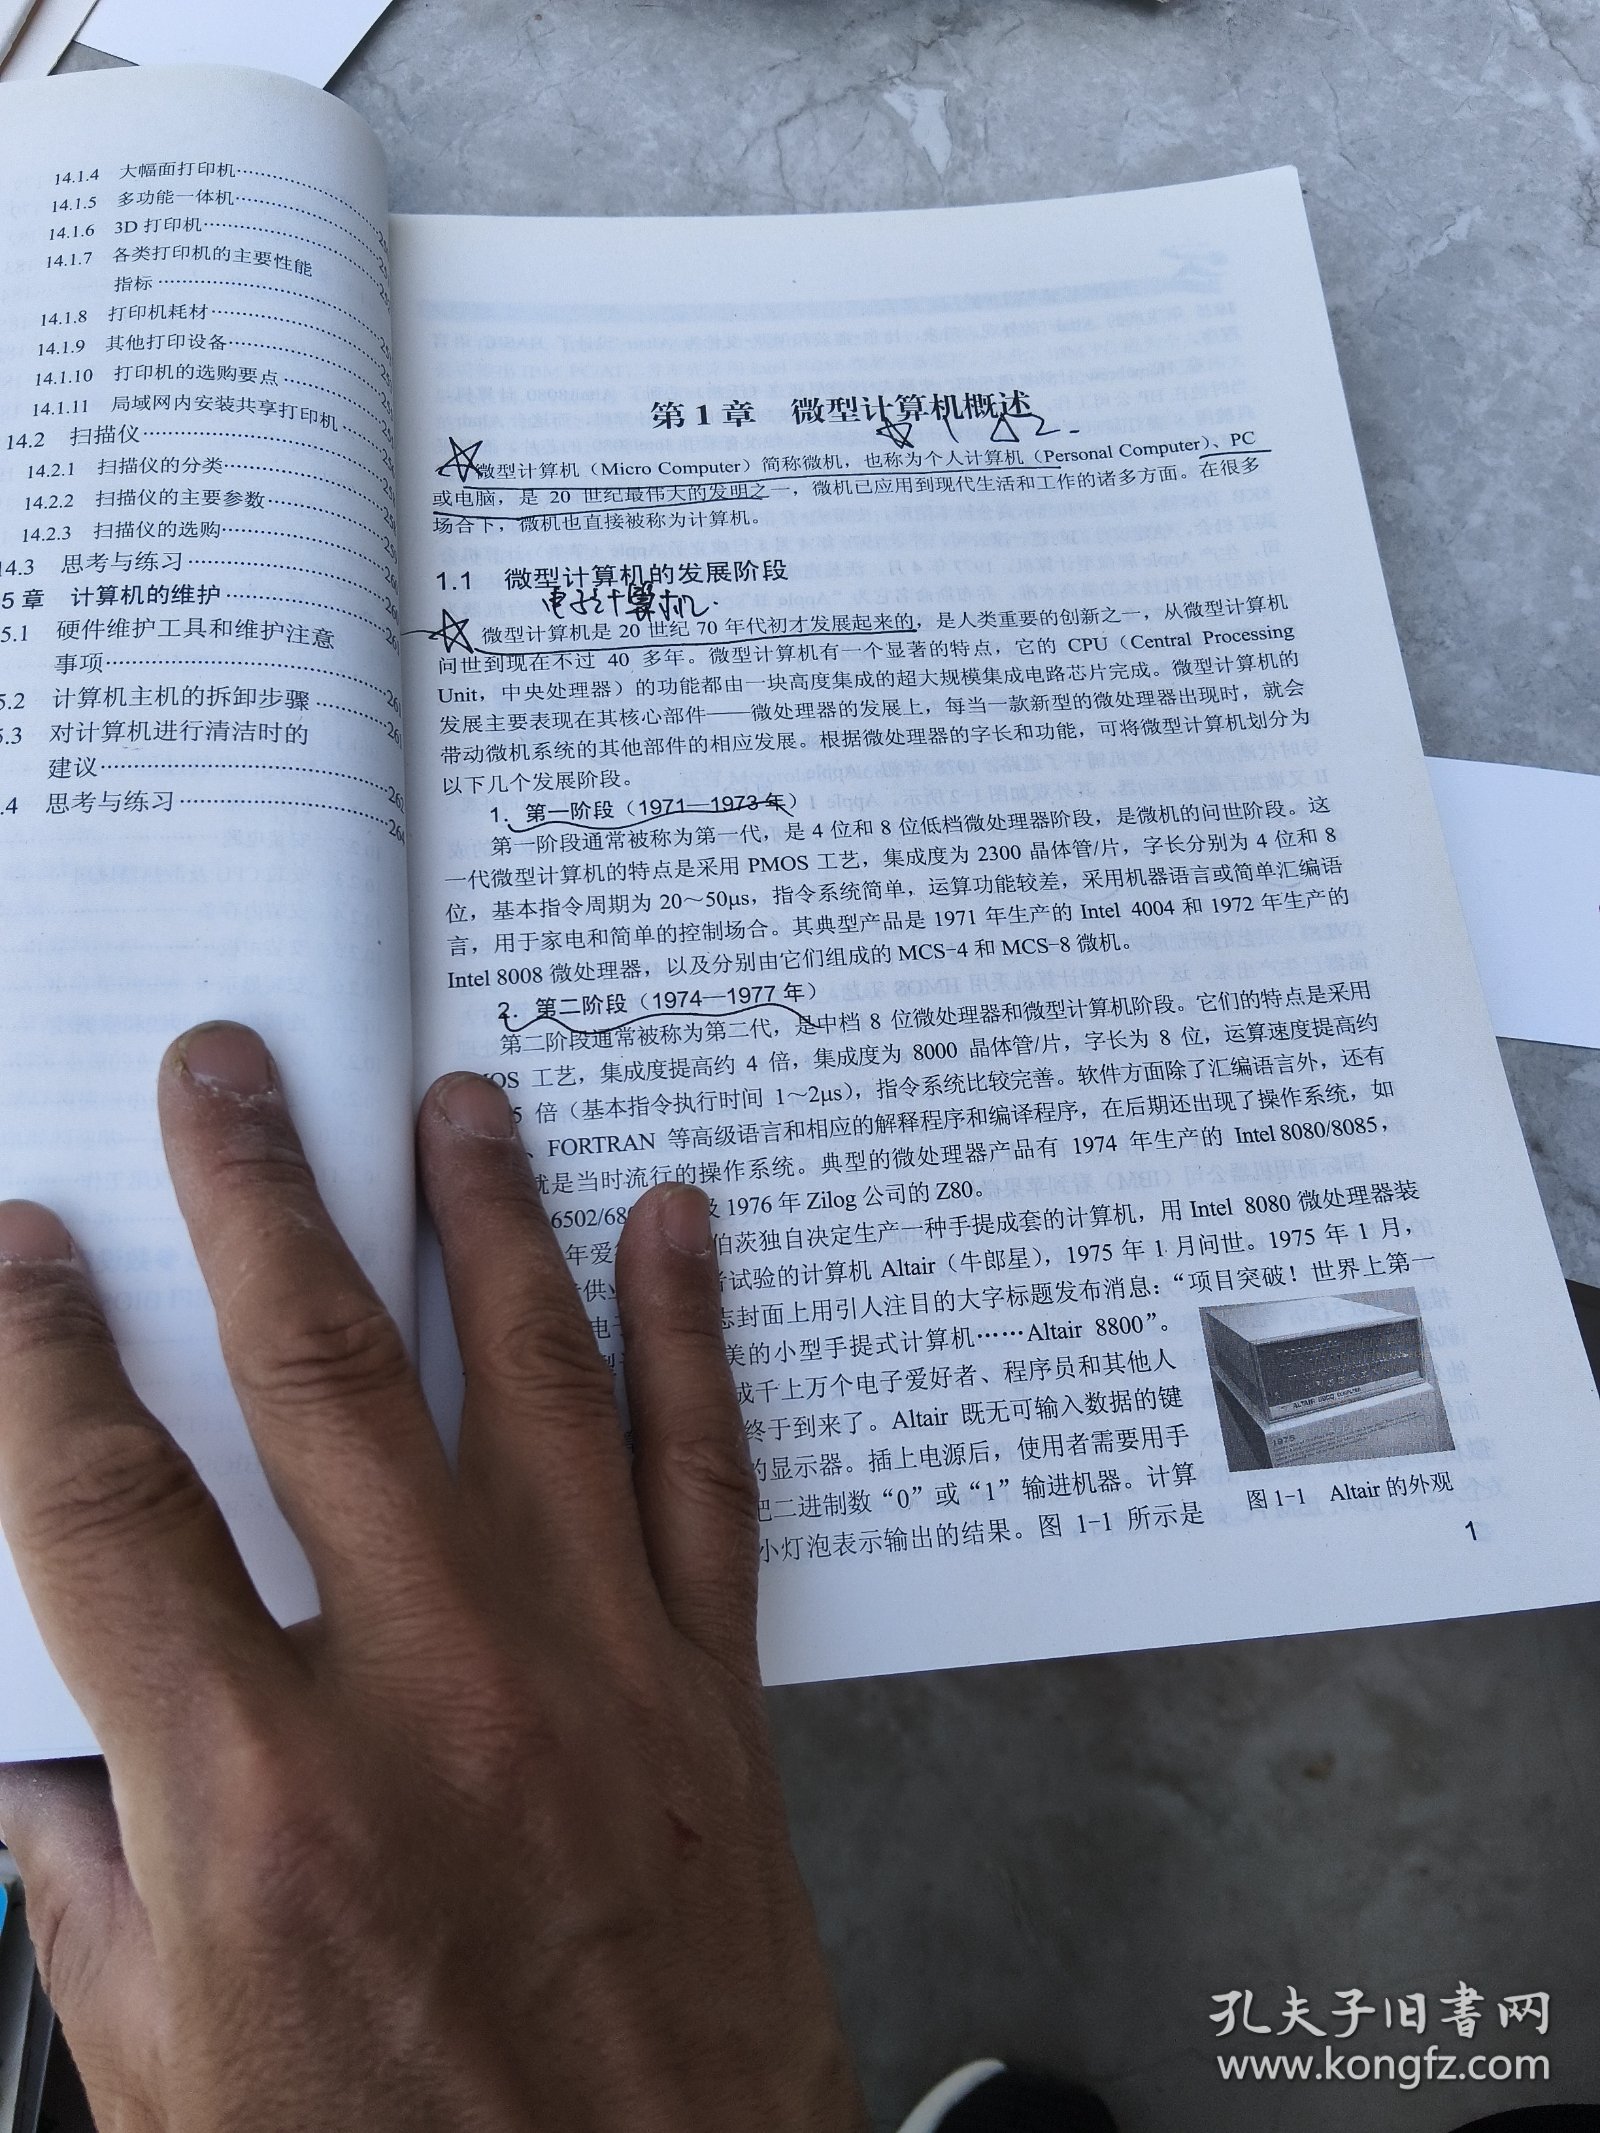 14.1.4 大幅面打印机
14.1.5 多功能一体机
14.1.6 3D 打印机
14.1.7 各类打印机的主要性能
指标
14.1.8 打印机耗材
14.1.9 其他打印设备
14.1.10 打印机的选购要点
14.1.11 局域网内安装共享打印机
14.2 扫描仪
14.2.1 扫描仪的分类
14.2.2 扫描仪的主要参数
14.2.3 扫描仪的选购
14.3 思考与练习
5 章 计算机的维护
5.1 硬件维护工具和维护注意
事项
5.2 计算机主机的拆卸步骤
5.3 对计算机进行清洁时的
建议
.4 思考与练习
第 1 章 微型计算机概述
微型计算机（Micro Computer）简称微机，也称为个人计算机（Personal Computer）、PC
或电脑，是 20 世纪最伟大的发明之一，微机已应用到现代生活和工作的诸多方面。在很多
场合下，微机也直接被称为计算机。
1.1 微型计算机的发展阶段
电子计算机.
微型计算机是 20 世纪 70 年代初才发展起来的，是人类重要的创新之一，从微型计算机
问世到现在不过 40 多年。微型计算机有一个显著的特点，它的 CPU（Central Processing
Unit，中央处理器）的功能都由一块高度集成的超大规模集成电路芯片完成。微型计算机的
发展主要表现在其核心部件——微处理器的发展上，每当一款新型的微处理器出现时，就会
带动微机系统的其他部件的相应发展。根据微处理器的字长和功能，可将微型计算机划分为
以下几个发展阶段。
1．第一阶段（1971—1973 年）
第一阶段通常被称为第一代，是 4 位和 8 位低档微处理器阶段，是微机的问世阶段。这
一代微型计算机的特点是采用 PMOS 工艺，集成度为 2300 晶体管/片，字长分别为 4 位和 8
位，基本指令周期为 20～50μs，指令系统简单，运算功能较差，采用机器语言或简单汇编语
言，用于家电和简单的控制场合。其典型产品是 1971 年生产的 Intel 4004 和 1972 年生产的
Intel 8008 微处理器，以及分别由它们组成的 MCS-4 和 MCS-8 微机。
2．第二阶段（1974—1977 年）
第二阶段通常被称为第二代，是中档 8 位微处理器和微型计算机阶段。它们的特点是采用
OS 工艺，集成度提高约 4 倍，集成度为 8000 晶体管/片，字长为 8 位，运算速度提高约
5 倍（基本指令执行时间 1～2μs），指令系统比较完善。软件方面除了汇编语言外，还有
、FORTRAN 等高级语言和相应的解释程序和编译程序，在后期还出现了操作系统，如
就是当时流行的操作系统。典型的微处理器产品有 1974 年生产的 Intel 8080/8085，
6502/68 及 1976 年 Zilog 公司的 Z80。
年爱 伯茨独自决定生产一种手提成套的计算机，用 Intel 8080 微处理器装
供业 者试验的计算机 Altair（牛郎星），1975 年 1 月问世。1975 年 1 月，
电子 志封面上用引人注目的大字标题发布消息：“项目突破！世界上第一
美的小型手提式计算机……Altair 8800”。
成千上万个电子爱好者、程序员和其他人
终于到来了。Altair 既无可输入数据的键
的显示器。插上电源后，使用者需要用手
把二进制数“0”或“1”输进机器。计算
小灯泡表示输出的结果。图 1-1 所示是
ALTAIR 8800 COMPUTER
1975
图 1-1 Altair 的外观
1
孔夫子旧书网
www.kongfz.com